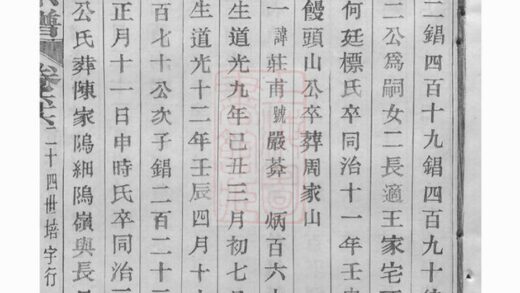 二錩四百十九錩四百九十
二公爲嗣女二長適王家宅
何廷標氏卒同治十一年壬
饅頭山公卒葬周家山
一諱莊甫號嚴棻 炳百六
生道光九年己丑三月初七
生道光十二年壬辰四月十
百七十公次子錩二百二十
正月十一日申時氏卒同治
公氏葬陳家隖細隖嶺與長
二十四世培字行